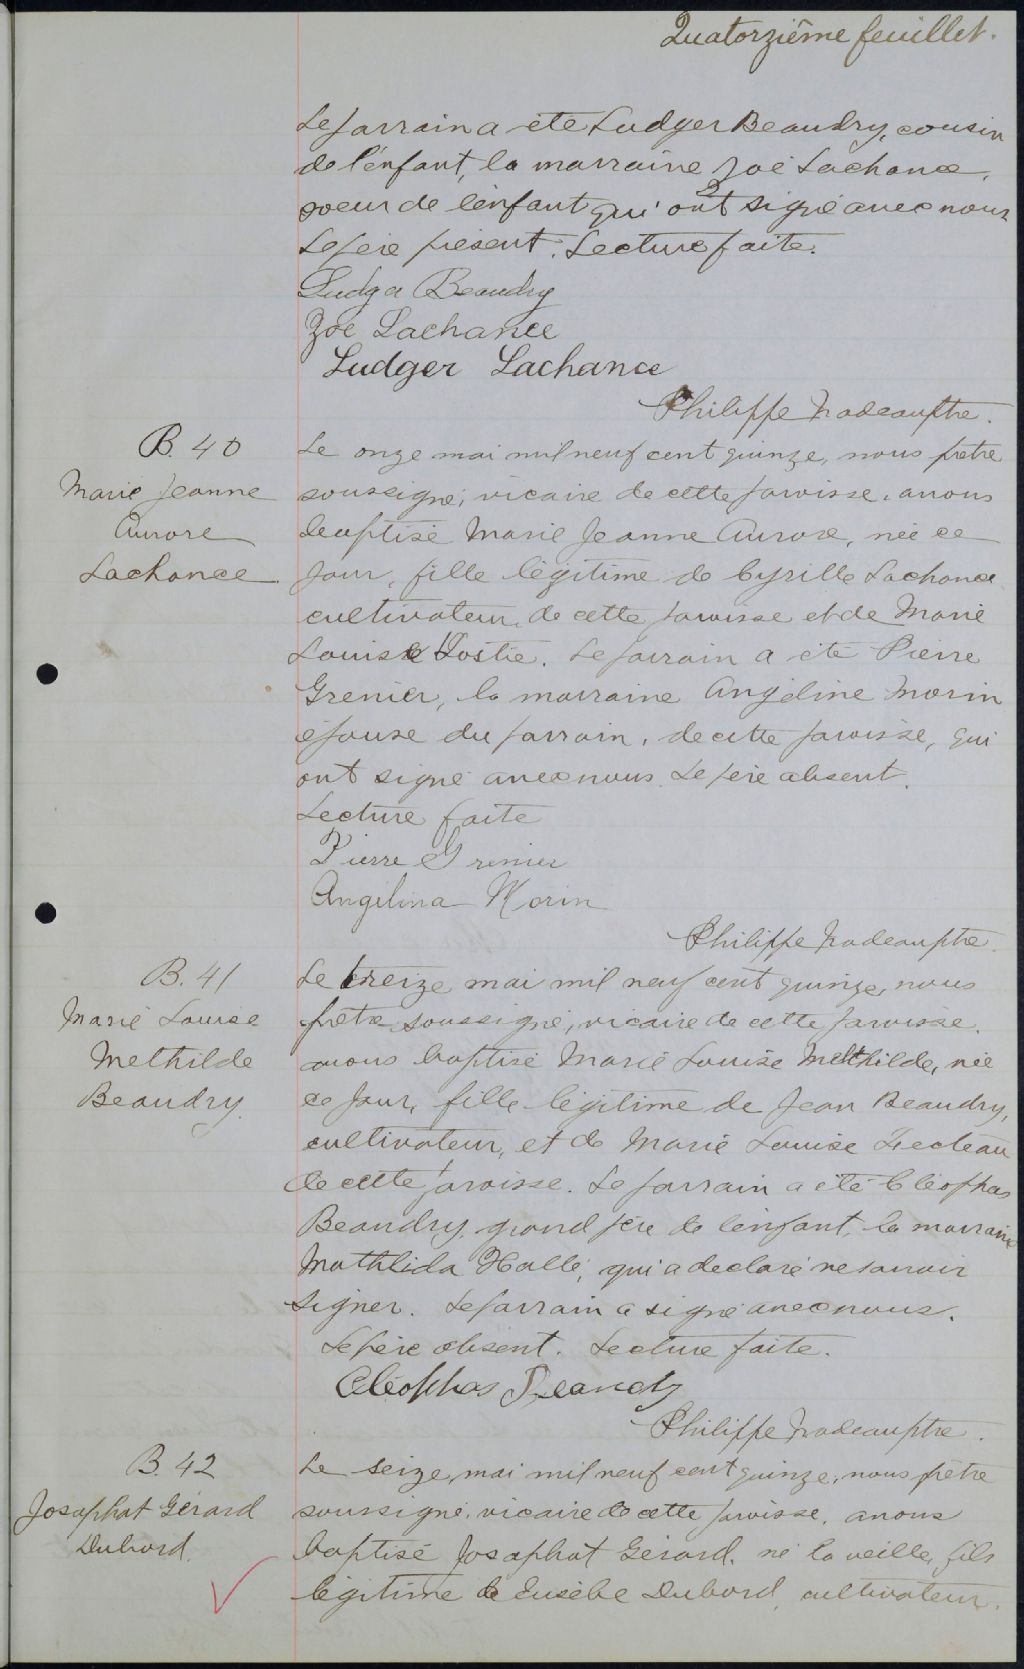 Quatorzième feuillet.
Le parrain a été Ludger Beaudry, cousin
de l'enfant, la marraine Zoé Lachance,
soeur de l'enfant qui ont signé avec nous
Le père présent. Lecture faite.
Ludger Beaudry
Zoé Lachance
Ludger Lachance
Philippe Nadeau ptre.
B. 40
Marie Jeanne
Aurore
Lachance
Le onze mai mil neuf cent quinze, nous prêtre
soussigné, vicaire de cette paroisse, avons
baptisé Marie Jeanne Aurore, née ce
jour, fille légitime de Cyrille Lachance
cultivateur, de cette paroisse et de Marie
Louise Lostie. Le parrain a été Pierre
Grenier, la marraine Angéline Morin
épouse du parrain, de cette paroisse, qui
ont signé avec nous. Le père absent.
Lecture faite
Pierre Grenier
Angélina Morin
Philippe Nadeau ptre.
B. 41
Marie Louise
Methilde
Beaudry.
Le treize mai mil neuf cent quinze, nous
prêtre soussigné, vicaire de cette paroisse,
avons baptisé Marie Louise Methilde, née
ce jour, fille légitime de Jean Beaudry,
cultivateur, et de Marie Louise Fecteau
de cette paroisse. Le parrain a été Cléophas
Beaudry, grand père de l'enfant, la marraine
Mathilda Hallé, qui a déclaré ne savoir
signer. Le parrain a signé avec nous.
Le père absent. Lecture faite.
Cléophas Beaudry
Philippe Nadeau ptre.
B. 42
Josaphat Gérard
Dubord.
Le seize mai mil neuf cent quinze, nous prêtre
soussigné, vicaire de cette paroisse, avons
baptisé Josaphat Gérard, né la veille, fils
légitime de Eusèbe Dubord, cultivateur,